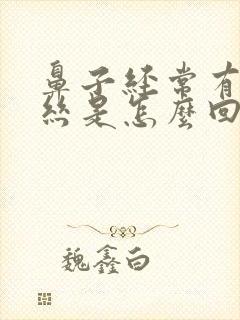 鼻子經常有
絲是怎麼回
魏鑫白